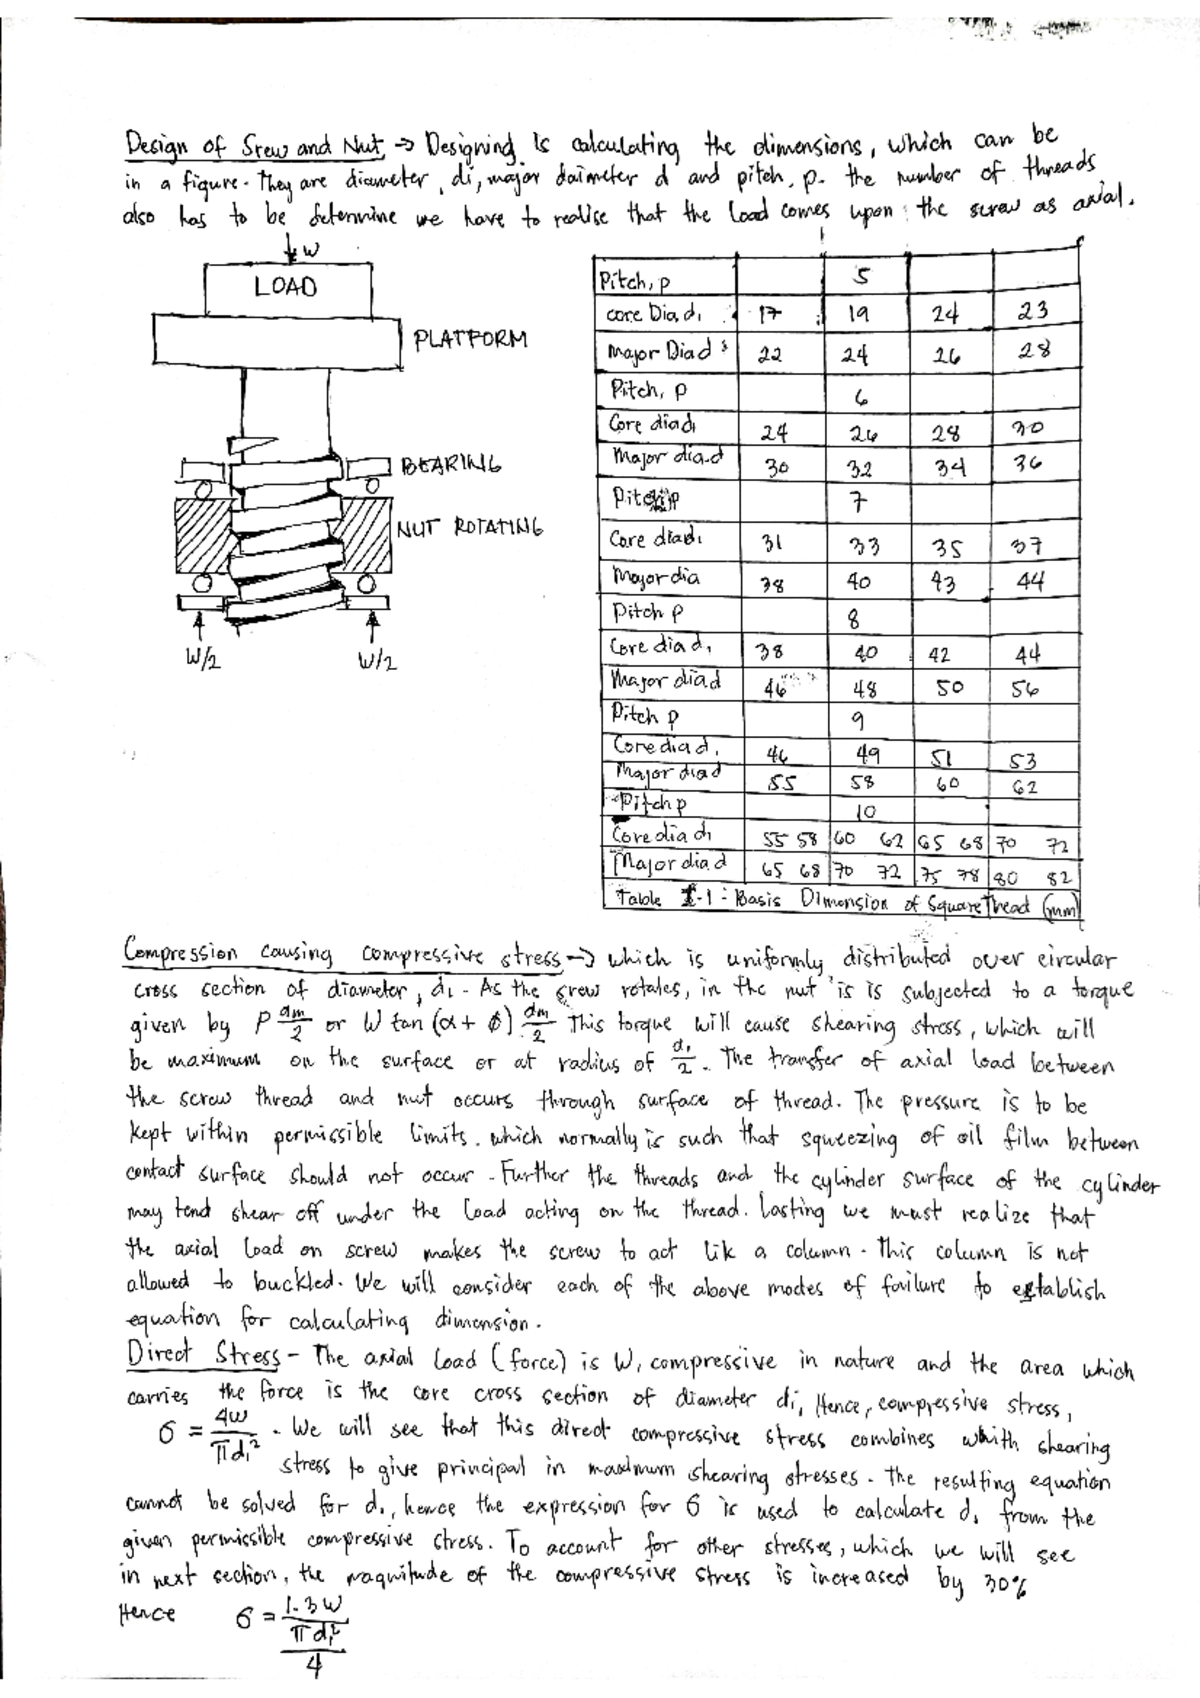 Design of Srew and Nut → Designing is calculating the dimensions, which can be
in a figure. They are diameter, di, major daimeter d and pitch, p. the number of threads
also has to be determine we have to realise that the load comes upon the screw as axial.
W
LOAD
PLATFORM
BEARING
NUT ROTATING
W/2 W/2
Pitch, p 5
core Dia, d1 17 19 24 23
Major Dia d 22 24 26 28
Pitch, p 6
Core dia d1 24 26 28 30
Major dia. d 30 32 34 36
Pitch p 7
Core dia d1 31 33 35 37
Major dia 38 40 43 44
Pitch p 8
Core dia d1 38 40 42 44
Major dia d 46 48 50 56
Pitch p 9
Core dia d1 46 49 51 53
Major dia d 55 58 60 62
Pitch p 10
Core dia d1 55 58 60 62 65 68 70 72
Major dia d 65 68 70 72 75 78 80 82
Table I-1: Basis Dimension of Square Thead (mm)
Compression causing compressive stress → which is uniformly distributed over circular
cross section of diameter, d1. As the srew rotates, in the nut is is subjected to a torque
given by P dm/2 or W tan (α + ϕ) dm/2 This torque will cause shearing stress, which will
be maximum on the surface or at radius of d1/2. The transfer of axial load between
the screw thread and nut occurs through surface of thread. The pressure is to be
kept within permissible limits. which normally is such that squeezing of oil film between
contact surface should not occur. Further the threads and the cylinder surface of the cylinder
may tend shear off under the load acting on the thread. Lasting we must realize that
the axial load on screw makes the screw to act lik a column. This column is not
allowed to buckled. We will consider each of the above modes of failure to establish
equation for calculating dimension.
Direct Stress - The axial load (force) is W, compressive in nature and the area which
carries the force is the core cross section of diameter di, Hence, compressive stress,
σ = 4w/πd1². We will see that this direct compressive stress combines whith shearing
stress to give principal in maximum shearing stresses. the resulting equation
cannot be solved for d1, hence the expression for σ is used to calculate d1 from the
given permissible compressive stress. To account for other stresses, which we will see
in next section, the magnitude of the compressive stress is increased by 30%
Hence σ = 1.3W / (πd1²/4)